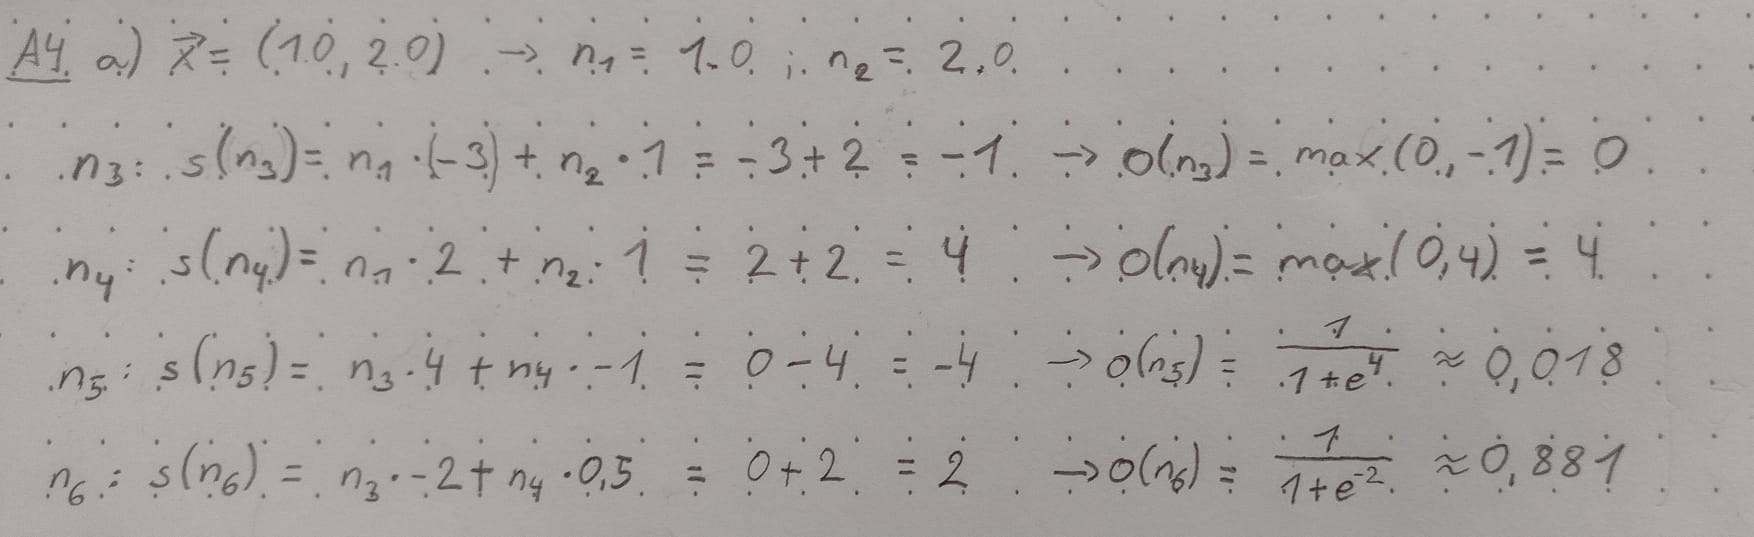 A4 a) x⃗ = (1.0, 2.0) → n₁ = 1.0 ; n₂ = 2.0
n₃: s(n₃) = n₁ · (-3) + n₂ · 1 = -3 + 2 = -1 → o(n₃) = max(0, -1) = 0
n₄: s(n₄) = n₁ · 2 + n₂ · 1 = 2 + 2 = 4 → o(n₄) = max(0, 4) = 4
n₅: s(n₅) = n₃ · 4 + n₄ · -1 = 0 - 4 = -4 → o(n₅) = 1/(1+e⁴) ≈ 0,018
n₆: s(n₆) = n₃ · -2 + n₄ · 0,5 = 0 + 2 = 2 → o(n₆) = 1/(1+e⁻²) ≈ 0,881